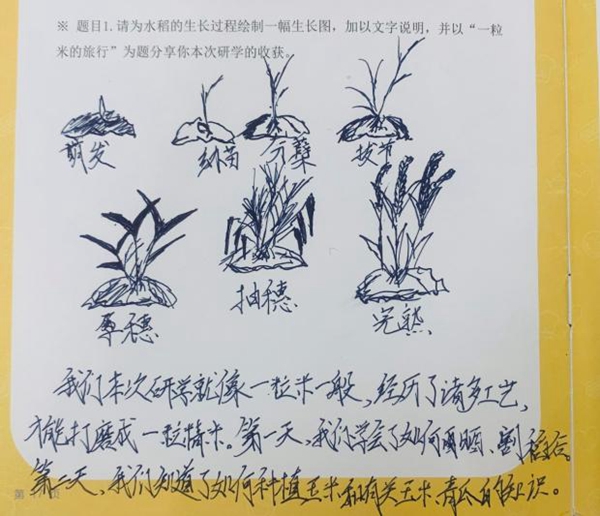 ※ 题目1.请为水稻的生长过程绘制一幅生长图，加以文字说明，并以“一粒
米的旅行”为题分享你本次研学的收获。
萌发 幼苗 分蘖 拔节
孕穗 抽穗 完熟
我们本次研学就像一粒米一般，经历了诸多工艺，
才能打磨成一粒精米。第一天，我们学会了如何割稻谷。
第二天，我们知道了如何种植玉米和有关玉米、青瓜的知识。
第 页